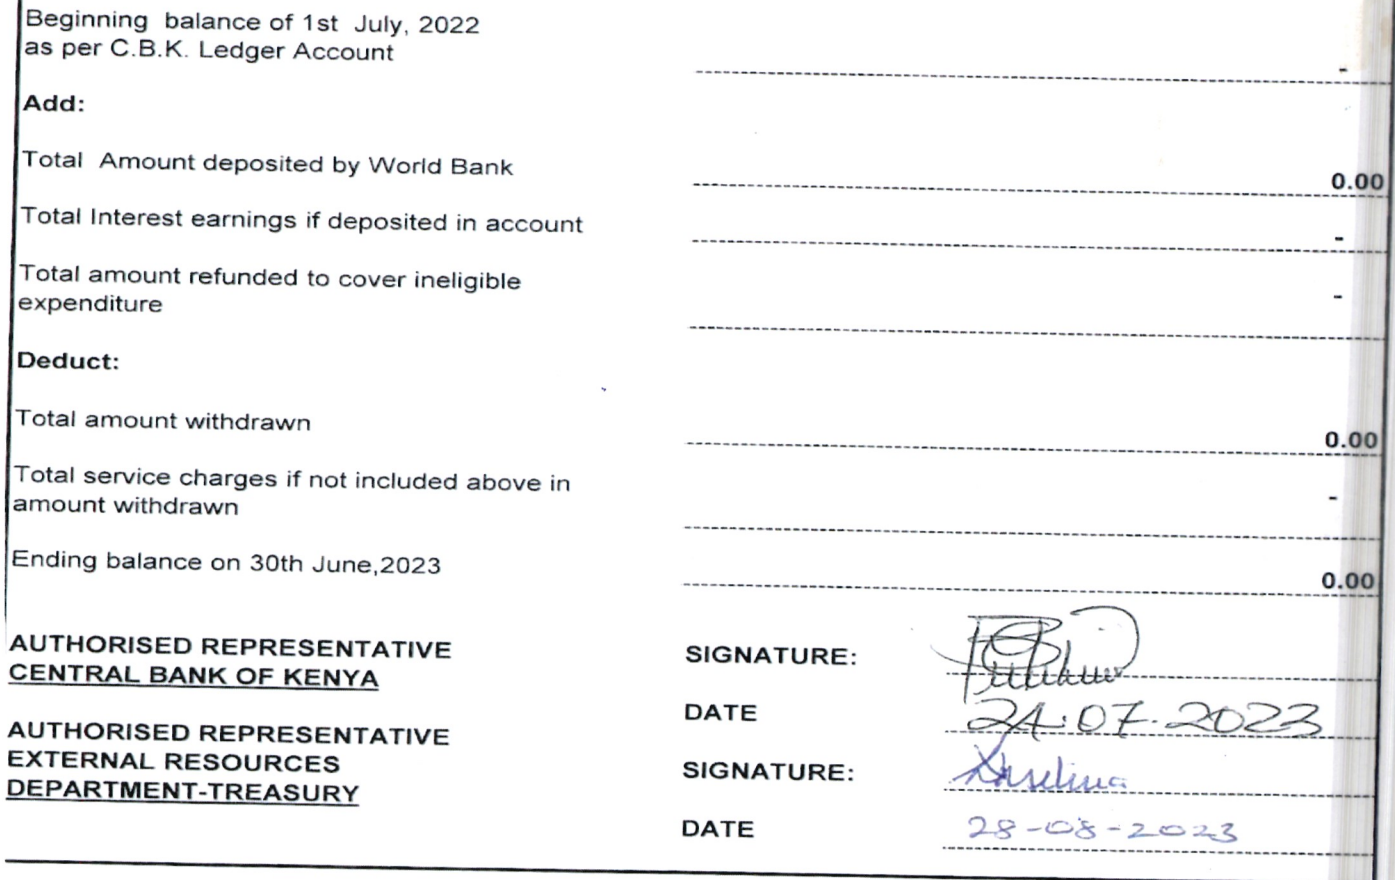 Beginning balance of 1st July, 2022
as per C.B.K. Ledger Account -
Add:
Total Amount deposited by World Bank 0.00
Total Interest earnings if deposited in account -
Total amount refunded to cover ineligible -
expenditure
Deduct:
Total amount withdrawn 0.00
Total service charges if not included above in -
amount withdrawn
Ending balance on 30th June,2023 0.00
AUTHORISED REPRESENTATIVE SIGNATURE:
CENTRAL BANK OF KENYA
DATE 24.07.2023
AUTHORISED REPRESENTATIVE
EXTERNAL RESOURCES SIGNATURE:
DEPARTMENT-TREASURY
DATE 28-08-2023